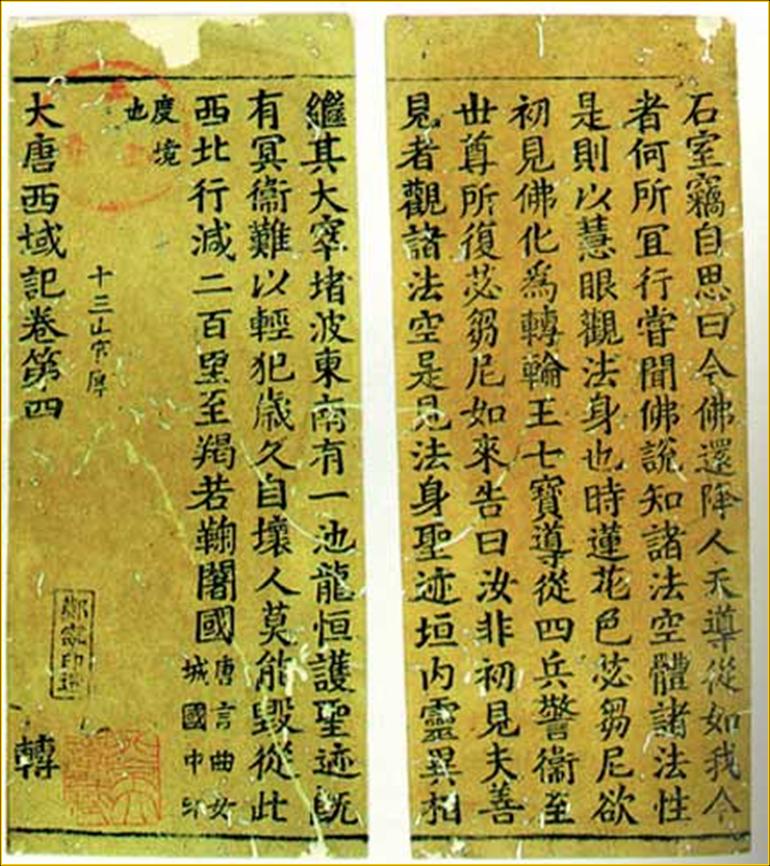 石室竊自思曰今佛還降人天導從如我今
者何所冝行嘗聞佛說知諸法空體諸法性
是則以慧眼觀法身也時蓮花色苾芻尼欲
初見佛化為轉輪王七寶導從四兵警衞至
世尊所復苾芻尼如來告曰汝非初見夫善
見者觀諸法空是見法身聖迹垣內靈異相
繼其大窣堵波東南有一池龍恒護聖迹旣
有冥衞難以輕犯歲久自壞人莫能毀從此
西北行減二百里至羯若鞠闍國唐言曲女城國中印
度境
也
十三
大唐西域記卷第四 轉